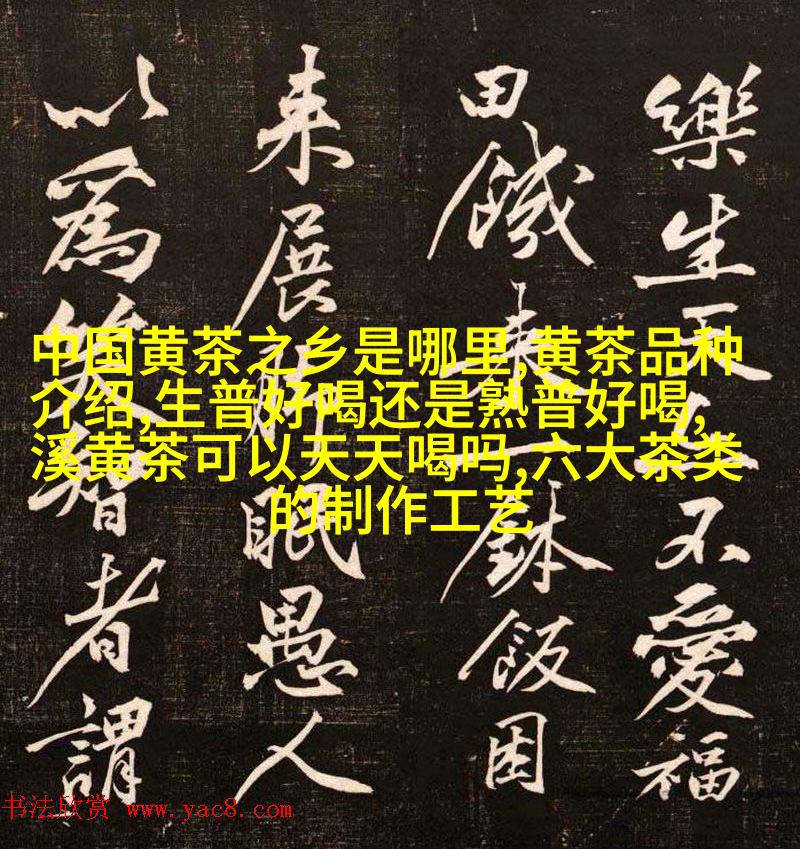 樂生天不愛福
田餓來一鉢飯困
來展眠愚人
以為笑智者謂
中国黄茶之乡是哪里,黄茶品种
介绍,生普好喝还是熟普好喝,
溪黄茶可以天天喝吗,六大茶类
的制作工艺
书法欣赏 www.yac8.com